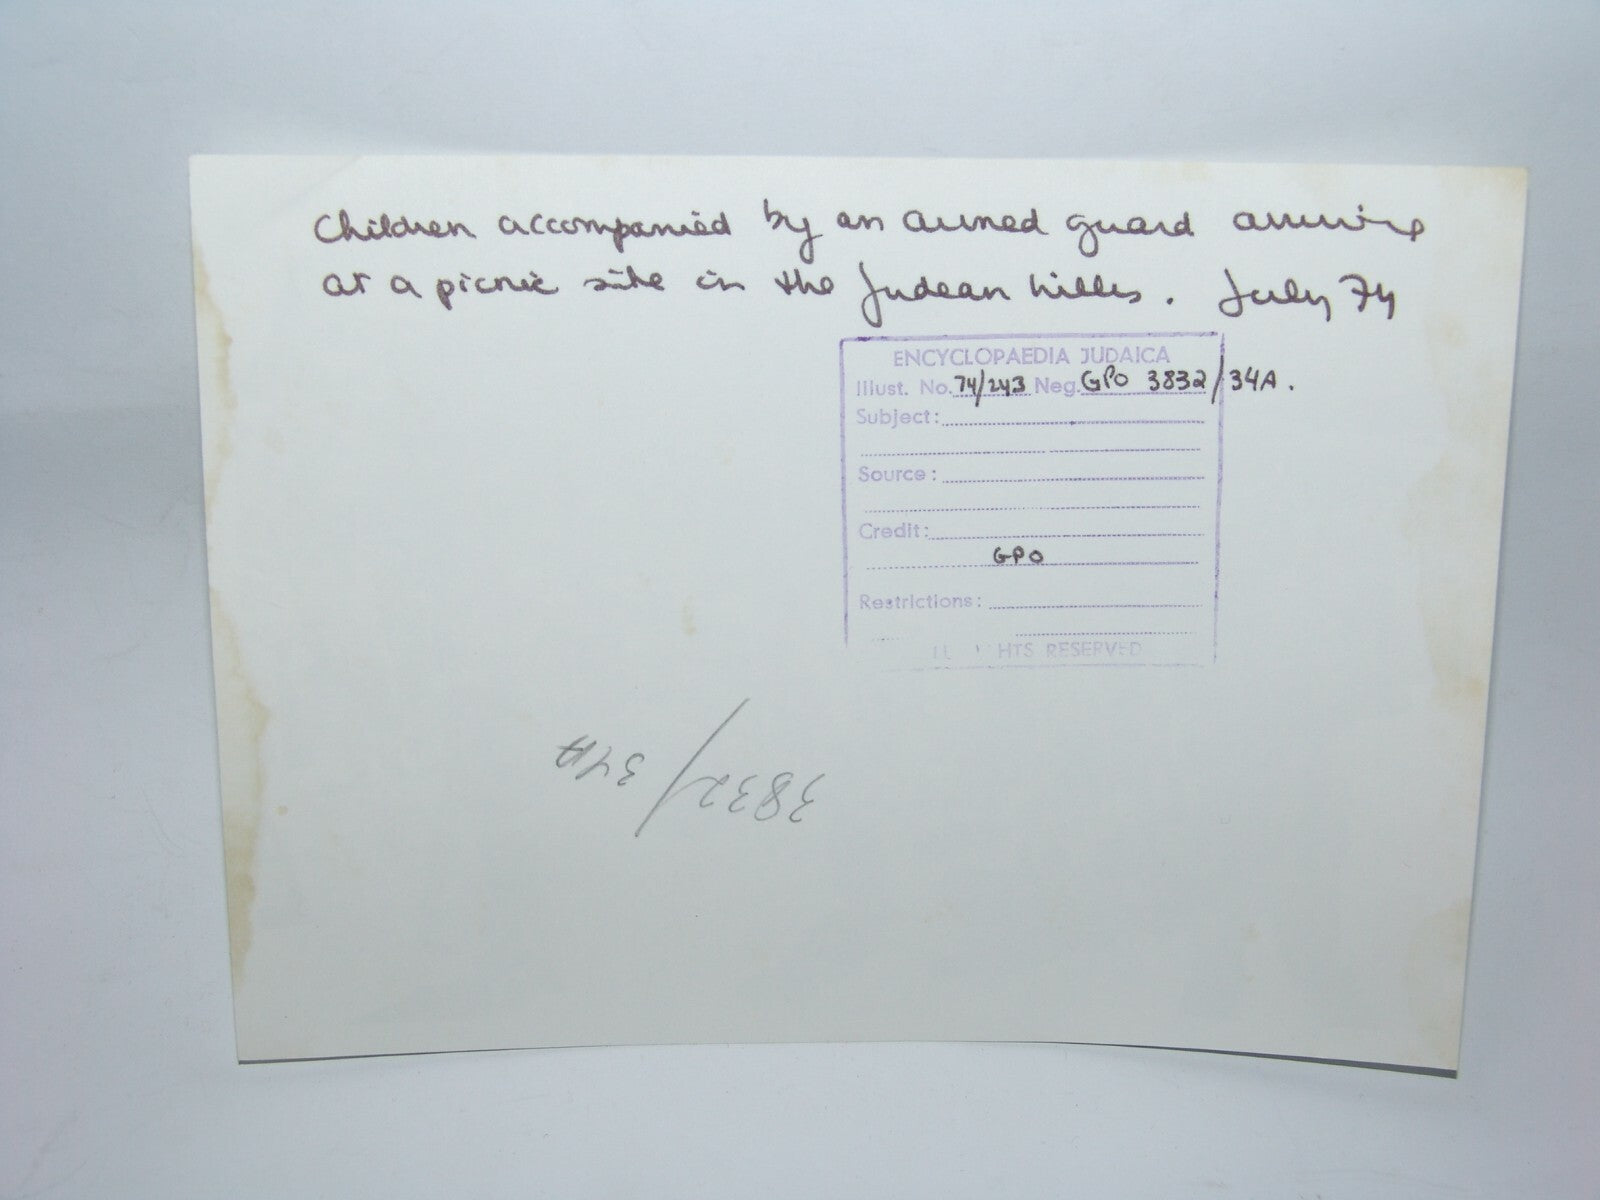 Children accompanied by an armed guard arriving
at a picnic site in the Judean hills. July 74
ENCYCLOPAEDIA JUDAICA
Illust. No. 74/243 Neg. GPO 3832/34A.
Subject:
Source:
Credit:
GPO
Restrictions:
HTS RESERVED
3832/34A